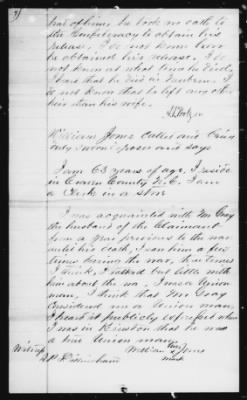 had of him, he took no oath to
the Confederacy to obtain his
release, I do not know how
he obtained his release. I do
not know at what time he died,
I hear that he died in Newbern. I
do not know that he left any other
heir than his wife.
William Jones called and being
duly sworn deposes and says
I am 63 years of age, I reside
in Craven County N.C. I am
a Clerk in a store
I was acquainted with Mr Gray
the husband of the Claimant
from a year previous to the war
until his death, I saw him a few
times during the war, two times
I think, I talked but little with
him about the war. I was a Union
man, I think that Mr Gray
Considered me a Union man,
I heard it publicly expressed when
I was in Kinston that he was
a true Union man
William his Jones
mark
Witness